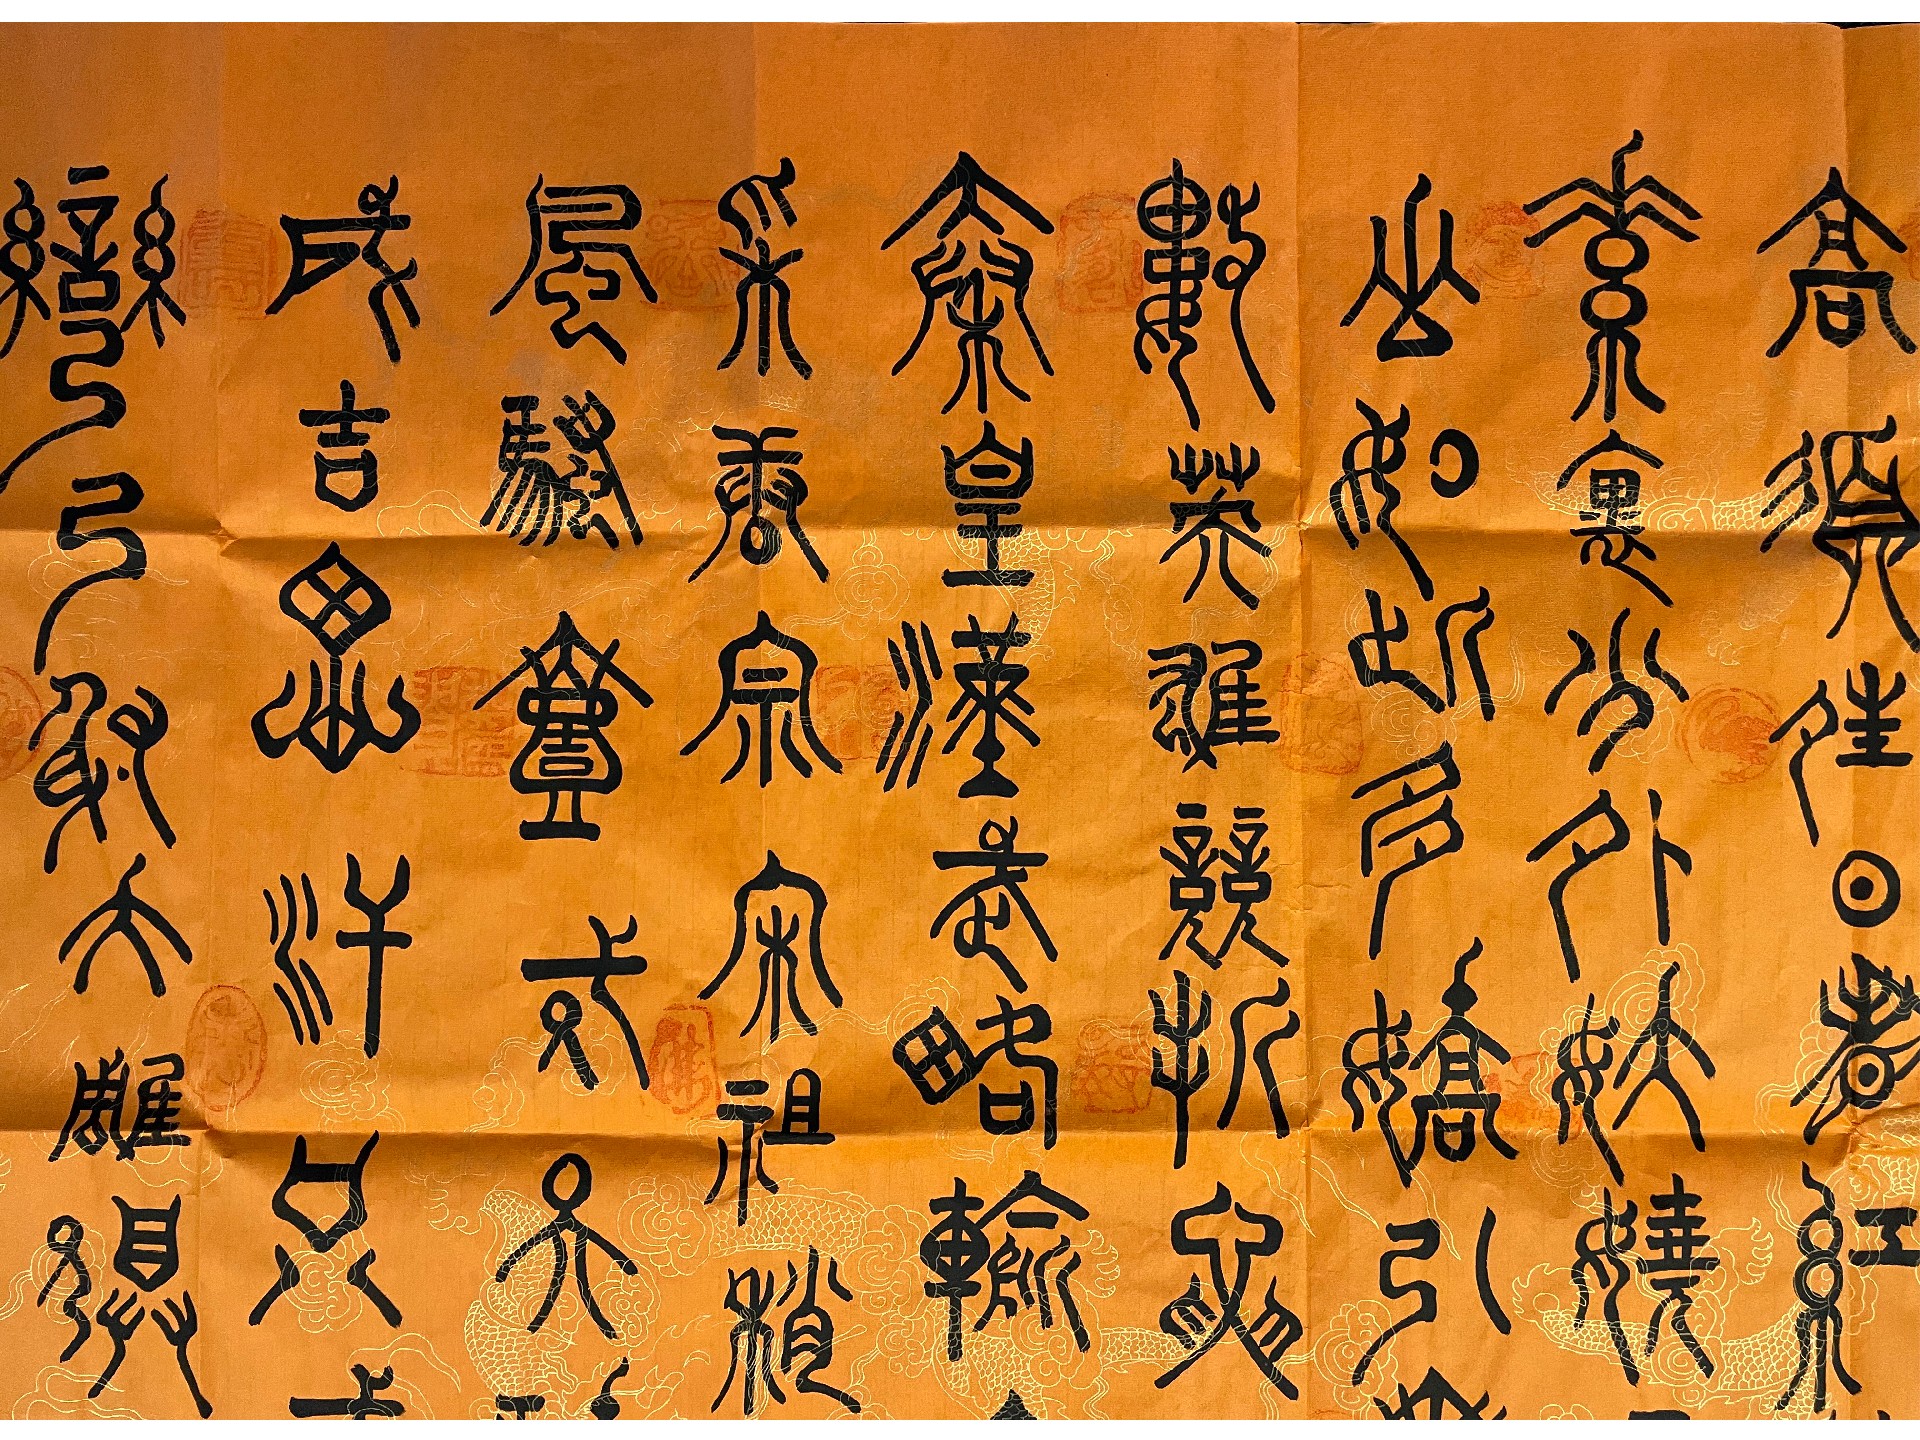 高須晴日看紅
素裹分外妖嬈
山如此多嬌引
數英雄競折腰
秦皇漢武略輸
采唐宗宋祖稍
風騷壹代天
成吉思汗只
彎弓射大雕俱